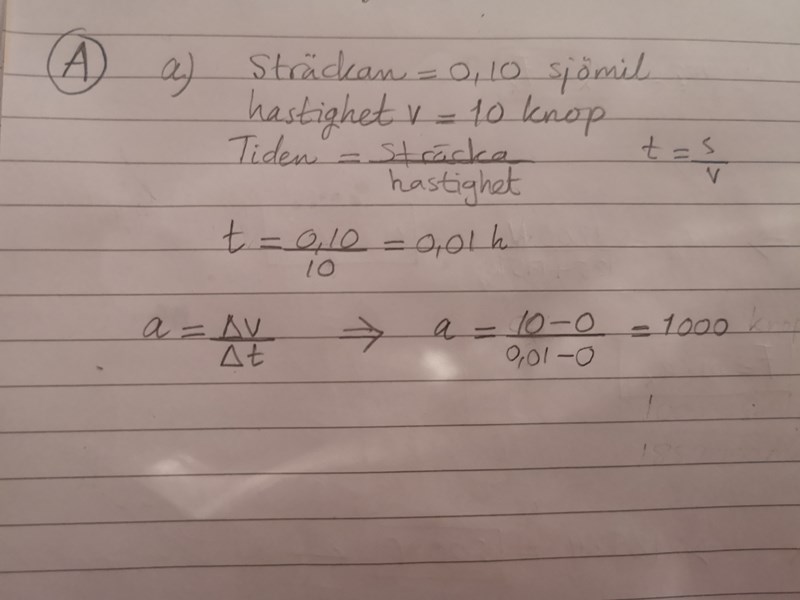 A a) Sträckan = 0,10 sjömil
hastighet v = 10 knop
Tiden = sträcka / hastighet t = s / v
t = 0,10 / 10 = 0,01 h
a = Δv / Δt ⇒ a = 10-0 / 0,01-0 = 1000